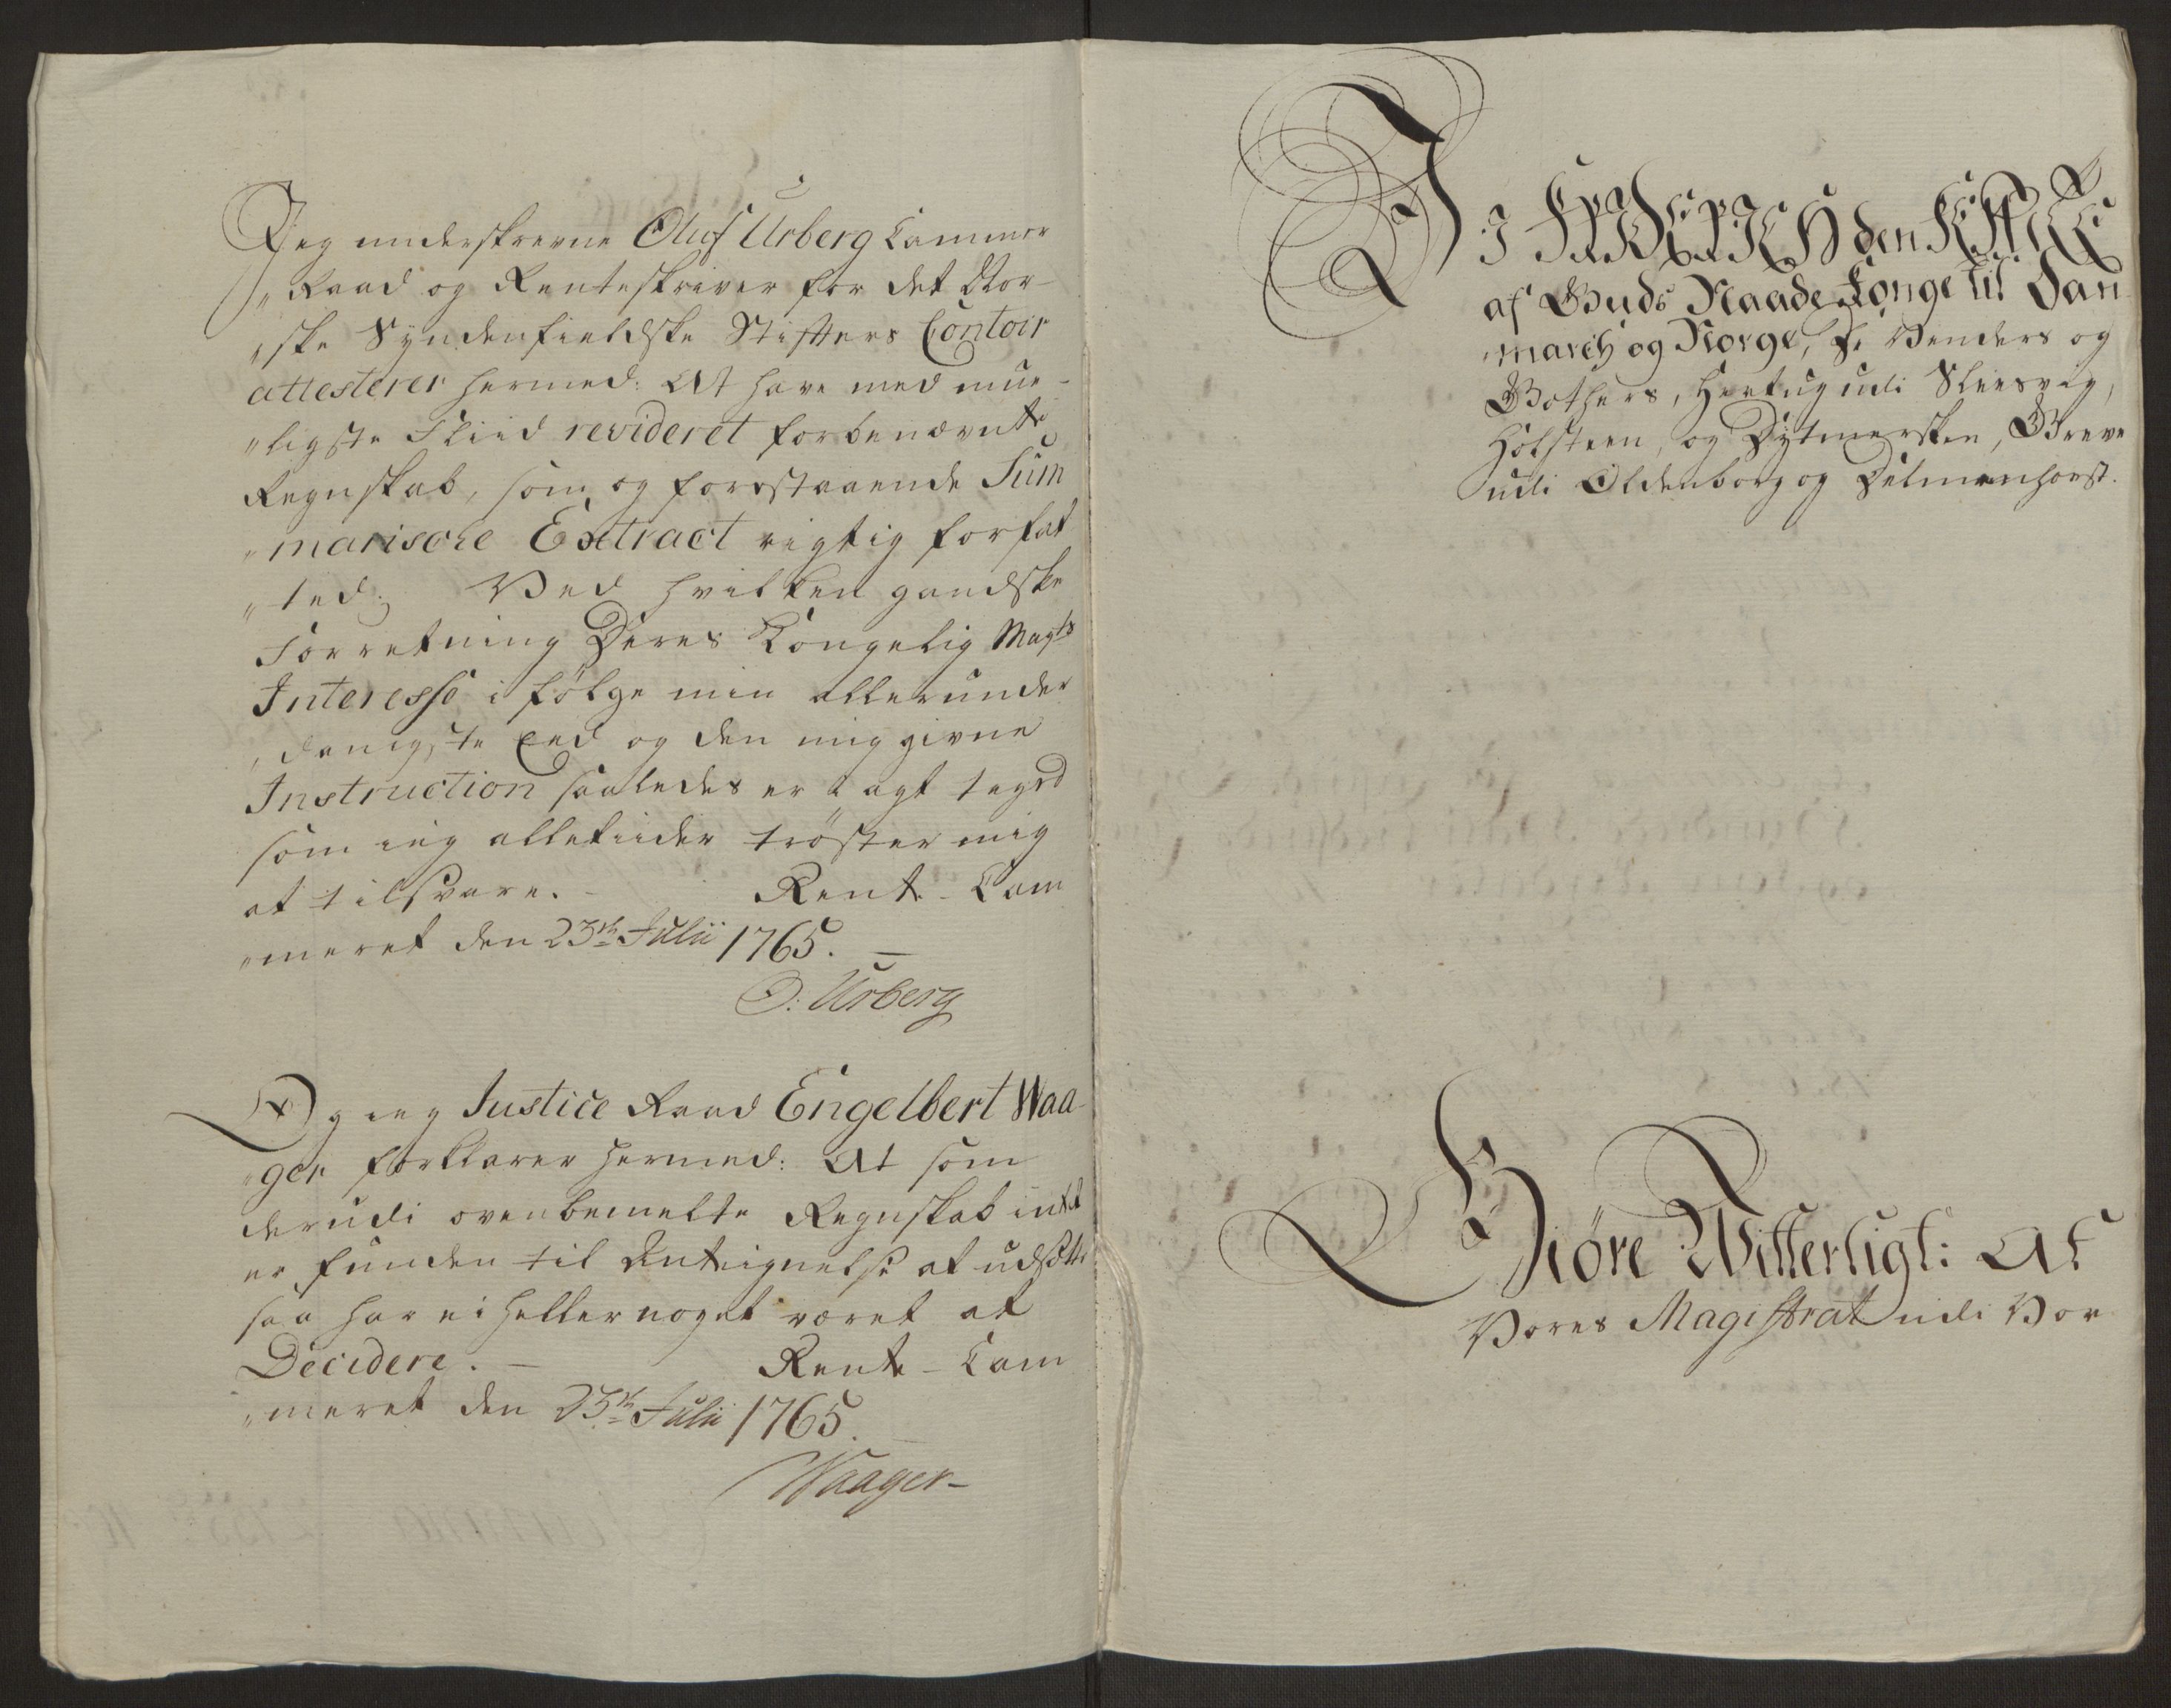 Jeg underskrevne Oluf Urberg Cammer
"Raad og Renteskriver for det Nor-
"ske Syndenfieldske Stifters Contoir
attesterer hermed: At have med mue-
"ligste Fliid revideret forbenævnte
Regnskab, som og forestaaende Sum
"marische Extract rigtig forfat
"ted; Ved hvilken gandske
Forretning Deres Kongelig Mayts
Interesse i følge min allerunder
"danigste Eed og den mig givne
Instruction saaledes er tagt
som ieg alletiider trøster mig
at tilsvare. - Rente-Cam
"meret den 23de Julii 1765. -
O: Urberg
Og ieg Justice Raad Engelbert Waa-
"ger forklarer hermed: At som
derudi ovenbemelte Regnskab intet
er funden til Anteignelse at udsætte
saa har ei heller noget været at
Decidere. - Rente-Cam
"meret den 23de Julii 1765.
Waager-
VI FRIDERICH den FEMTE
af Guds Naade Konge til Dan
"march og Norge, de Venders og
Gothers, Hertug udi Slesvig,
Holsteen, og Dytmersken, Greve
udi Oldenborg og Delmenhorst.
Giøre Witterligt: At
Vores Magistrat udi Vor